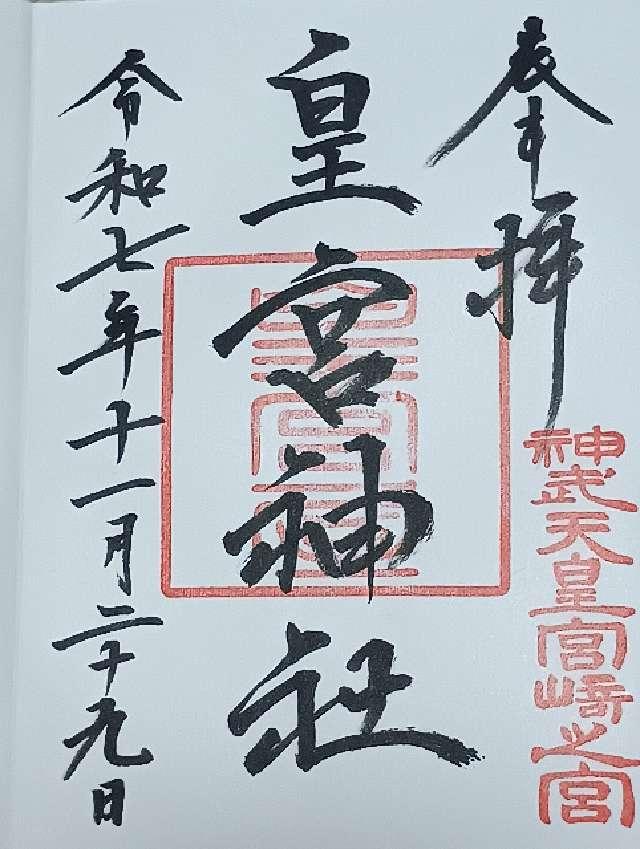 奉拝
神武天皇宮崎之宮
皇宮神社
令和七年十一月二十九日